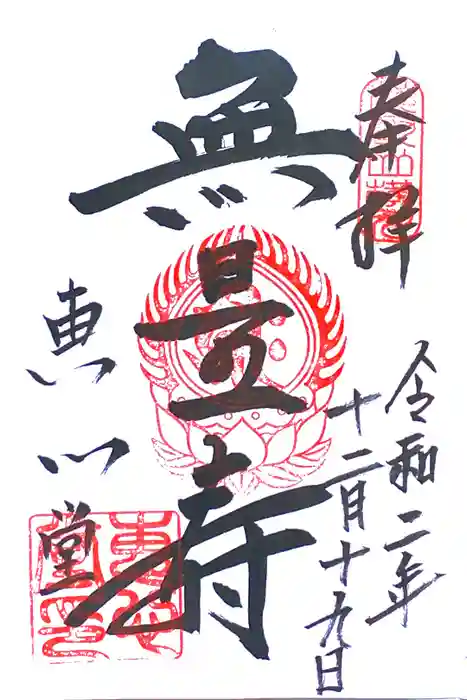 奉拝
令和二年
十二月十九日
無量寿
恵心堂
恵心
堂印